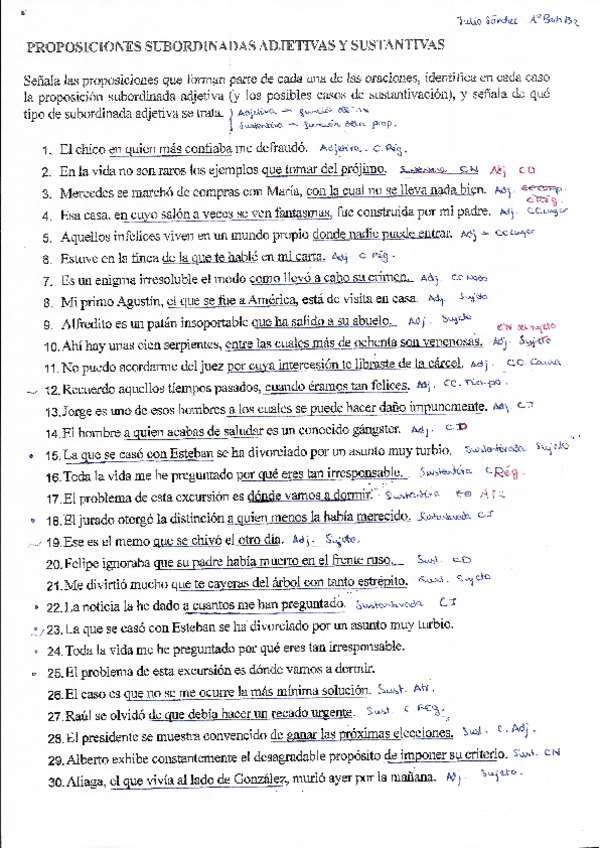 Julio Sánchez 1º Bach B2
PROPOSICIONES SUBORDINADAS ADJETIVAS Y SUSTANTIVAS
Señala las proposiciones que forman parte de cada una de las oraciones, identifica en cada caso
la proposición subordinada adjetiva (y los posibles casos de sustantivación), y señala de qué
tipo de subordinada adjetiva se trata. Adjetiva → función del
Sustantiva → función prop.
1. El chico en quien más confiaba me defraudó. Adjetiva. C. Rég.
2. En la vida no son raros los ejemplos que tomar del prójimo. Sustantiva CN Adj CD
3. Mercedes se marchó de compras con María, con la cual no se lleva nada bien. Adj. C Rég.
4. Esa casa, en cuyo salón a veces se ven fantasmas, fue construida por mi padre. Adj. CC Lugar
5. Aquellos infelices viven en un mundo propio donde nadie puede entrar. Adj → CC Lugar
6. Estuve en la finca de la que te hablé en mi carta. Adj. C Rég.
7. Es un enigma irresoluble el modo como llevó a cabo su crimen. Adj. CC Modo
8. Mi primo Agustín, el que se fue a América, está de visita en casa. Adj. Sujeto
9. Alfredito es un patán insoportable que ha salido a su abuelo. Adj. Sujeto
10. Ahí hay unas cien serpientes, entre las cuales más de ochenta son venenosas. Adj. Sujeto CN del sujeto
11. No puedo acordarme del juez por cuya intercesión te libraste de la cárcel. Adj. CC Causa
12. Recuerdo aquellos tiempos pasados, cuando éramos tan felices. Adj. CC. Tiempo.
13. Jorge es uno de esos hombres a los cuales se puede hacer daño impunemente. Adj. CI
14. El hombre a quien acabas de saludar es un conocido gángster. Adj. CD
15. La que se casó con Esteban se ha divorciado por un asunto muy turbio. Sustantivada Sujeto
16. Toda la vida me he preguntado por qué eres tan irresponsable. Sustantiva C Rég.
17. El problema de esta excursión es dónde vamos a dormir. Sustantiva Atr
18. El jurado otorgó la distinción a quien menos la había merecido. Sustantivada CI
19. Ese es el memo que se chivó el otro día. Adj. Sujeto.
20. Felipe ignoraba que su padre había muerto en el frente ruso. Sust. CD
21. Me divirtió mucho que te cayeras del árbol con tanto estrépito. Sust. Sujeto
22. La noticia la he dado a cuantos me han preguntado. Sustantivada CI
23. La que se casó con Esteban se ha divorciado por un asunto muy turbio.
24. Toda la vida me he preguntado por qué eres tan irresponsable.
25. El problema de esta excursión es dónde vamos a dormir.
26. El caso es que no se me ocurre la más mínima solución. Sust. Atr.
27. Raúl se olvidó de que debía hacer un recado urgente. Sust. C Rég.
28. El presidente se muestra convencido de ganar las próximas elecciones. Sust. C. Adj.
29. Alberto exhibe constantemente el desagradable propósito de imponer su criterio. Sust. CN
30. Aliaga, el que vivía al lado de González, murió ayer por la mañana. Adj. Sujeto.